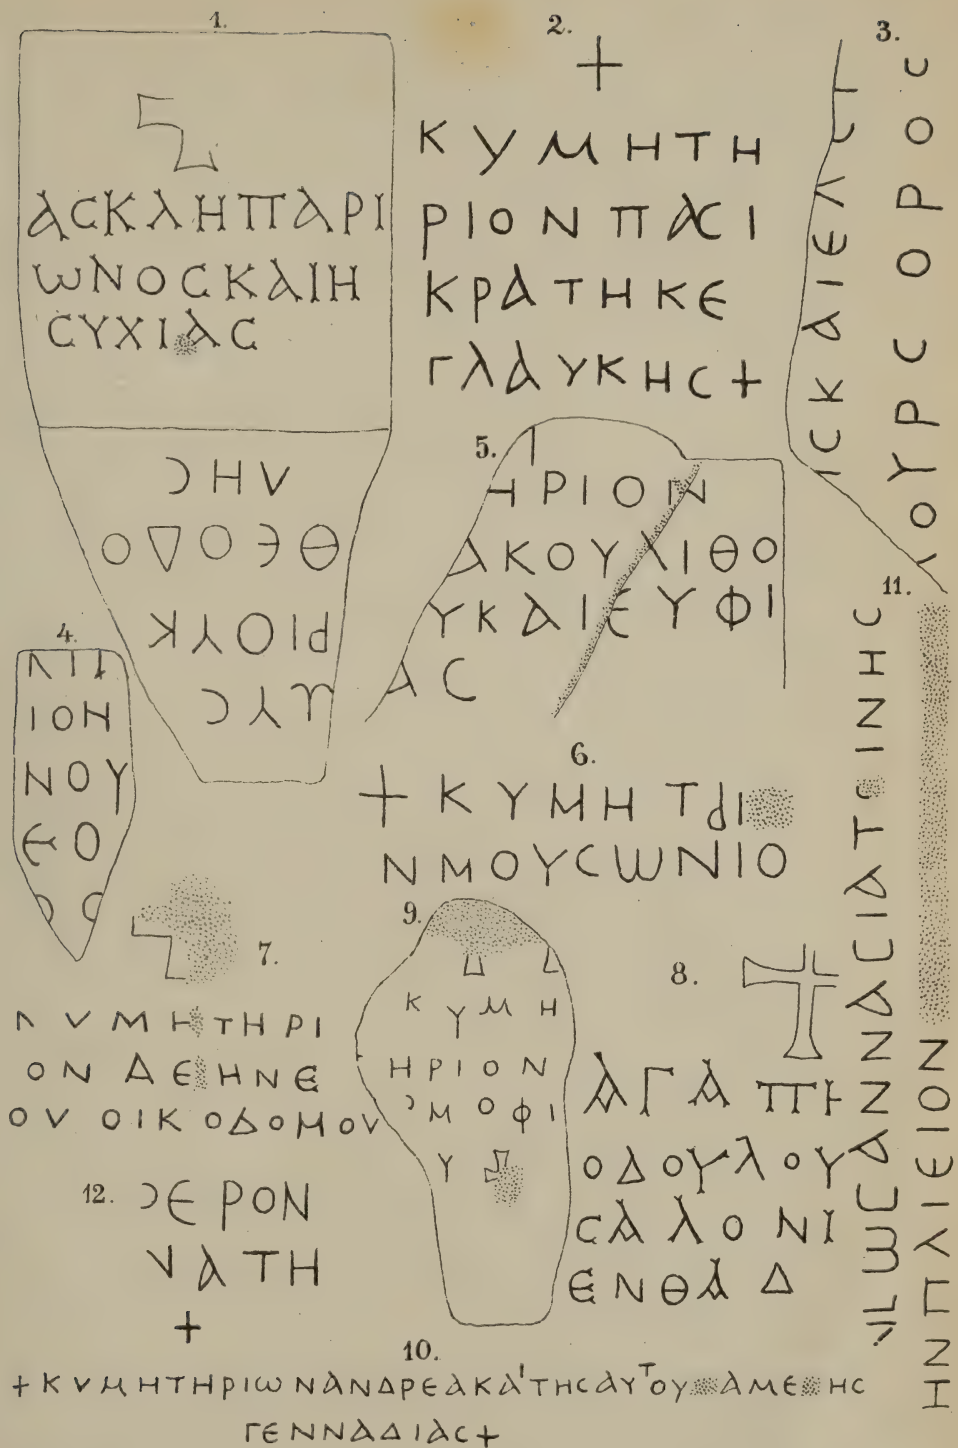 1.
ΑϹΚΛΗΠΑΡΙ
ωΝΟϹΚΑΙΗ
ϹΥΧΙΑϹ
ΛΗϹ
ΘΕΟΔΟ
ΡΙΟΥΚ
ϹΥϹ
2.
+
ΚΥΜΗΤΗ
ΡΙΟΝΠΑϹΙ
ΚΡΑΤΗΚΕ
ΓΛΑΥΚΗϹ+
3.
ΙϹΚΑΙΕΛ
ΛΟΥΡϹΟΡΟϹ
4.
ΙΟΗ
ΝΟΥ
ΕΟ
5.
ΗΡΙΟΝ
ΑΚΟΥΛΙΘΟ
ΥΚΑΙΕΥΦΙ
ΑϹ
6.
+ΚΥΜΗΤ
ΝΜΟΥϹωΝΙΟ
7.
ΥΜΗΤΗΡΙ
ΟΝ ΑΕΗΝΕ
ΟΥ ΟΙΚΟΔΟΜΟΥ
8.
ΑΓΑΠΗ
ΟΔΟΥΛΟΥ
ϹΑΛΟΝΙ
ΕΝΘΑΔ
9.
ΚΥΜΗ
ΗΡΙΟΝ
ΜΟΦΙ
Υ
10.
+ΚΥΜΗΤΗΡΙωΝΑΝΔΡΕΑΚΑΙΤΗϹΑΥΤΟΥ ΑΜΕ ΗϹ
ΓΕΝΝΑΔΙΑϹ+
11.
ωϹΑΝΝΑϹΙΑΤϹΙΝΗϹ
ΗΝΠΛΙΕΙΟΝ
12.
ΕΡΟΝ
ΑΤΗ
+